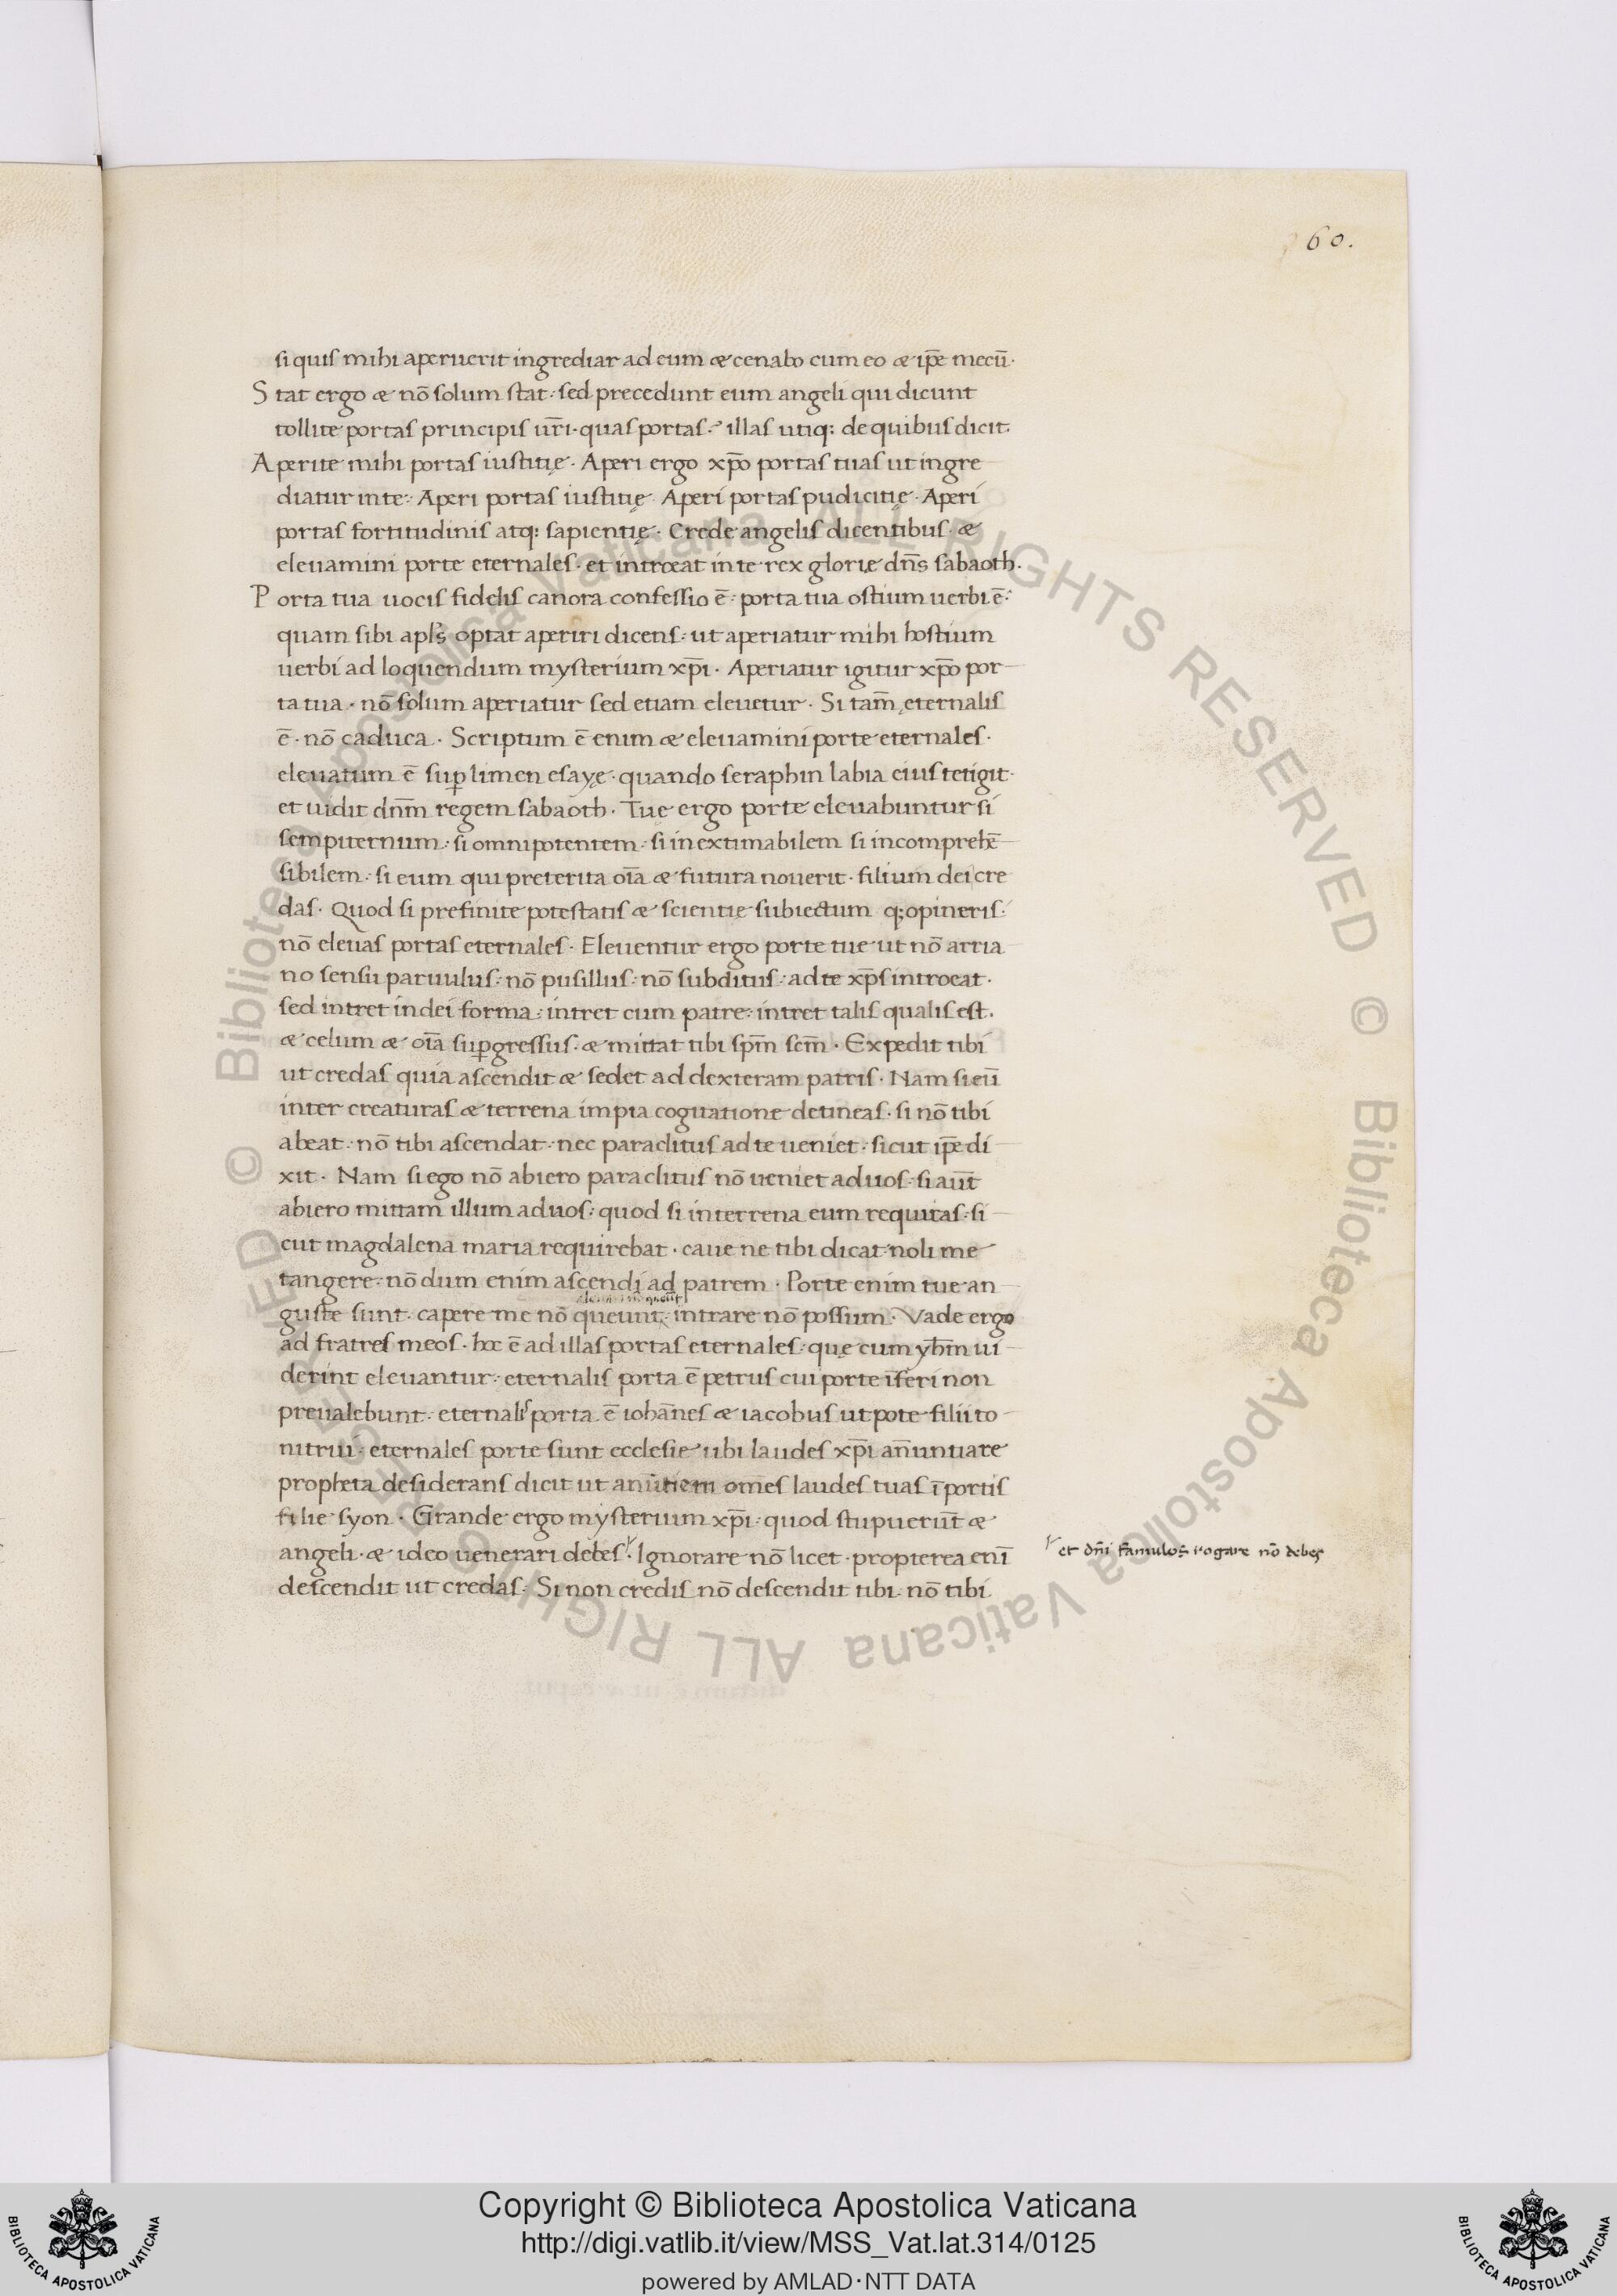 60.
si quis mihi aperuerit ingrediar ad eum & cenabo cum eo & ip̄e mecū·
Stat ergo & nō solum stat: sed precedunt eum angeli qui dicunt
tollite portas principis ur̄i· quas portas? illas utiq: de quibus dicit.
Aperite mihi portas iustitię· Aperi ergo xp̄o portas tuas ut ingre
diatur in te: Aperi portas iustitię· Aperi portas pudicitię· Aperi
portas fortitudinis atq: sapientię· Crede angelis dicentibus· &
eleuamini porte eternales· et introeat in te rex glorię dn̄s sabaoth.
Porta tua uocis fidelis canora confessio ē: porta tua ostium uerbi ē:
quam sibi apl's optat aperiri dicens: ut aperiatur mihi hostium
uerbi ad loquendum mysterium xp̄i· Aperiatur igitur xp̄o por
ta tua· nō solum aperiatur sed etiam eleuetur· Si tam̄ ęternalis
ē· nō caduca· Scriptum ē enim & eleuamini porte eternales·
eleuatum ē sup̱ limen esayę· quando seraphin labia eius tetigit·
et uidit dn̄m regem sabaoth· Tuę ergo porte eleuabuntur si
sempiternum: si omnipotentem: si inextimabilem si incomprehē
sibilem: si eum qui preterita oīa & futura nouerit· filium dei cre
das· Quod si prefinite potestatis & scientię subiectum q; opineris:
nō eleuas portas eternales· Eleuentur ergo porte tue ut nō arria
no sensu paruulus: nō pusillus: nō subditus: ad te xp̄s introeat·
sed intret in dei forma: intret cum patre: intret talis qualis est.
& celum & oīa sup̱gressus· & mittat tibi sp̄m sc̄m· Expedit tibi
ut credas quia ascendit & sedet ad dexteram patris· Nam si eū
inter creaturas & terrena impia cogitatione detineas· si nō tibi
abeat: nō tibi ascendat: nec paraclitus ad te ueniet· sicut ip̄e di
xit· Nam si ego nō abiero paraclitus nō ueniet ad uos· si aut̄
abiero mittam illum ad uos: quod si in terrena eum requiras· si
cut magdalena maria requirebat· caue ne tibi dicat noli me
tangere: nō dum enim ascendi ad patrem· Porte enim tue an
guste sunt· capere me nō queunt: intrare nō possum· Vade ergo
ad fratres meos· hoc ē ad illas portas eternales: quę cum yh̄m ui
derint eleuantur: eternalis porta ē petrus cui porte īferi non
preualebunt: eternalis porta ē iohānes & iacobus ut pote filii to
nitrui· eternales porte sunt ecclesie ubi laudes xp̄i an̄untiare
propheta desiderans dicit ut anūtiem om̄es laudes tuas ī portis
filie syon· Grande ergo mysterium xp̄i: quod stupuerūt &
angeli· & ideo uenerari debes· Ignorare nō licet· propterea enī
descendit ut credas: Si non credis nō descendit tibi· nō tibi
et dn̄i famulos rogare nō debes
Copyright © Biblioteca Apostolica Vaticana
http://digi.vatlib.it/view/MSS_Vat.lat.314/0125
powered by AMLAD·NTT DATA
BIBLIOTECA APOSTOLICA VATICANA
BIBLIOTECA APOSTOLICA VATICANA
© Biblioteca Apostolica Vaticana ALL RIGHTS RESERVED
© Biblioteca Apostolica Vaticana ALL RIGHTS RESERVED